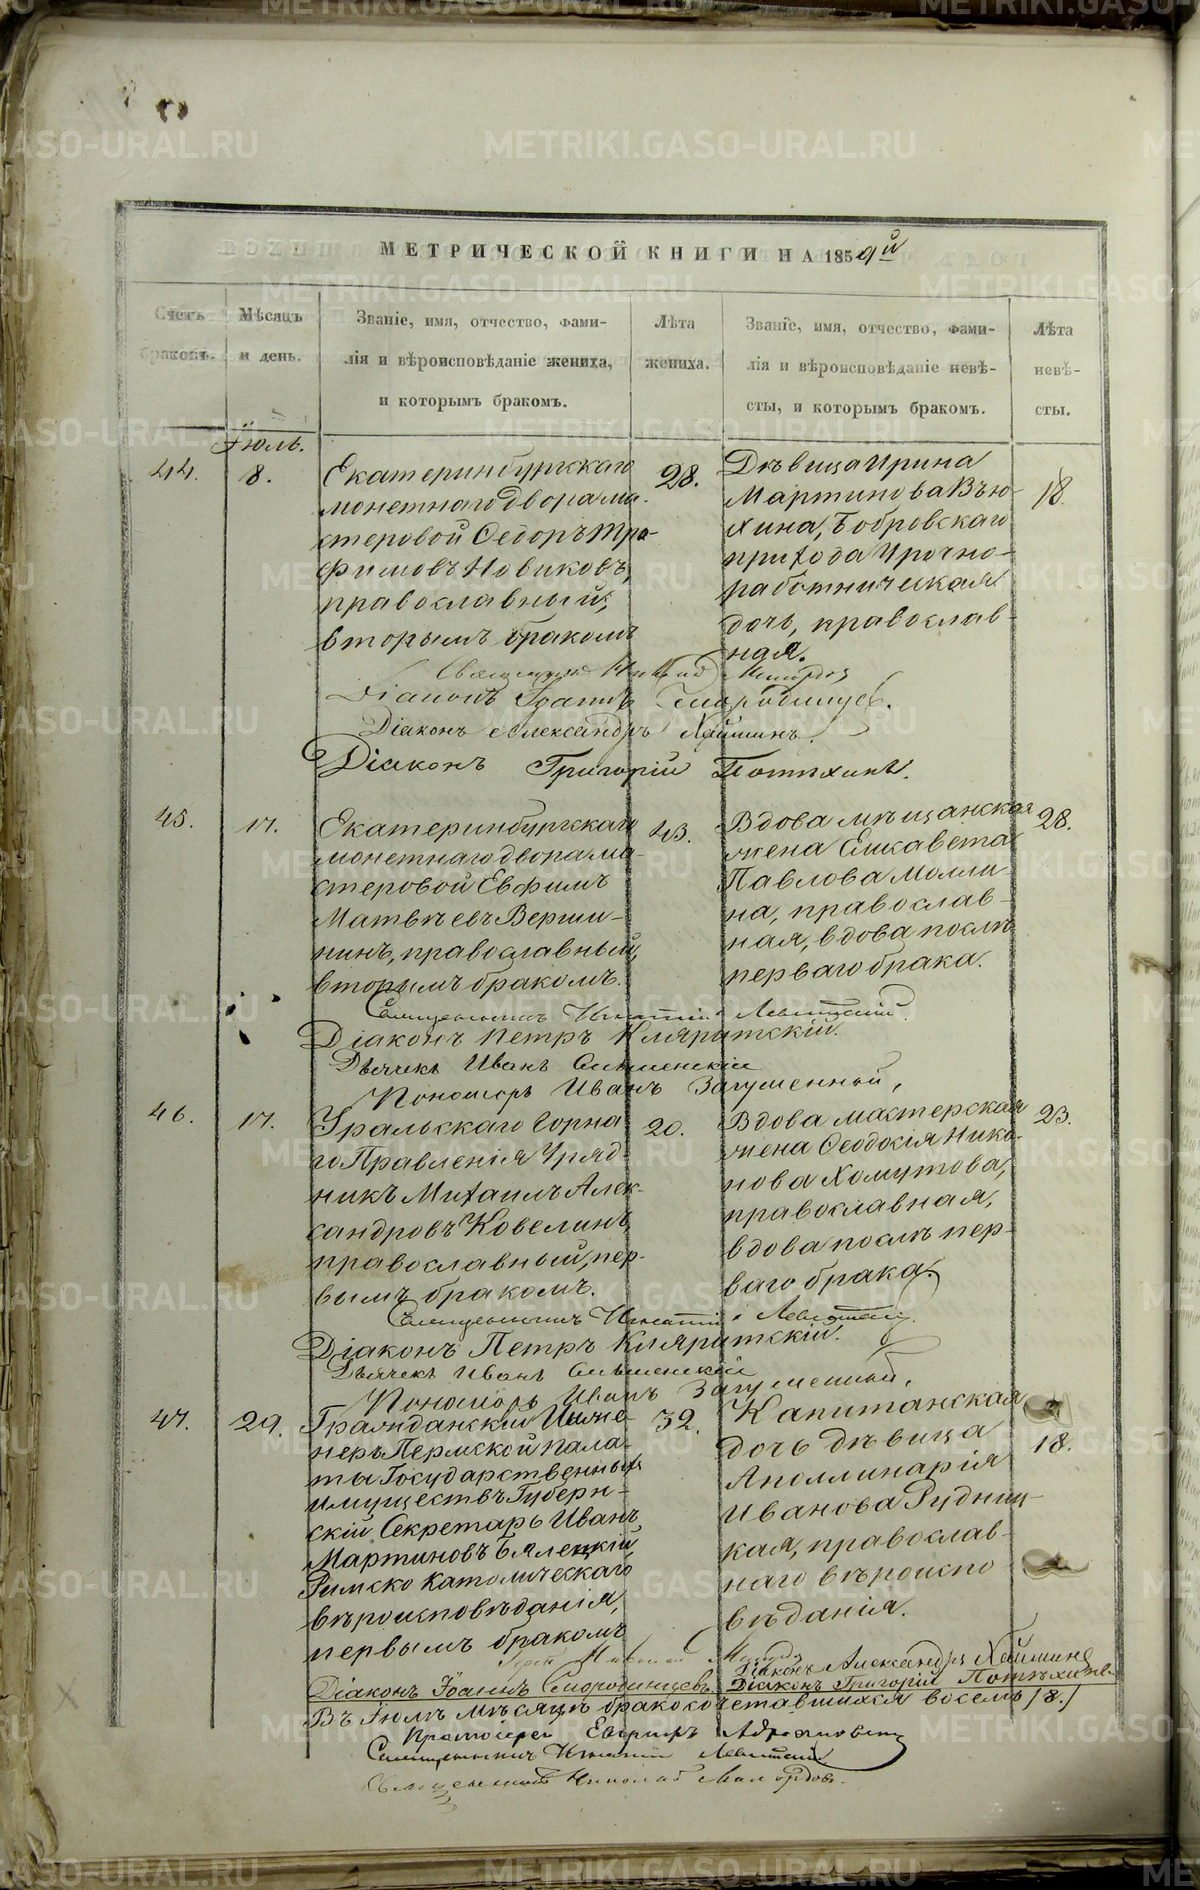 МЕТРИЧЕСКОЙ КНИГИ НА 1859й
Счетъ браковъ.
Мѣсяцъ и день.
Званіе, имя, отчество, фами-
лія и вѣроисповѣданіе жениха,
и которымъ бракомъ.
Лѣта
жениха.
Званіе, имя, отчество, фами-
лія и вѣроисповѣданіе невѣ-
сты, и которымъ бракомъ.
Лѣта
невѣ-
сты.
Іюль.
44.
8.
Екатеринбургскаго
монетнаго двора ма-
стеровой Ѳедоръ Тро-
фимовъ Новиковъ,
православный,
вторымъ бракомъ
28.
Дѣвица Ирина
Мартинова Вью-
хина, Бобровскаго
прихода Урочно-
работническая
дочь, православ-
ная.
18
Діаконъ Іоаннъ Смородинцевъ.
Діаконъ Александръ Хаймин.
Діаконъ Григорій Потѣхинъ.
45.
17.
Екатеринбургскаго
монетнаго двора ма-
стеровой Евфимъ
Матвѣевъ Верши-
нинъ, православный,
вторымъ бракомъ.
43.
Вдова мѣщанская
жена Елисавета
Павлова Молли-
на, православ-
ная, вдова послѣ
перваго брака.
28.
Священникъ Игнатій Левитскій.
Діаконъ Петръ Кляритскій.
Дьячекъ Иванъ
Пономарь Иванъ Загуменной,
46.
17.
Уральскаго Горна-
го Правленія Уряд-
никъ Михаилъ Алек-
сандровъ Ковелинъ,
православный, пер-
вымъ бракомъ.
20.
Вдова мастерская
жена Ѳеодосія Нико-
нова Хомутова,
православная,
вдова послѣ пер-
ваго брака.
23.
Священникъ Игнатій Левитскій.
Діаконъ Петръ Кляритскій.
Дьячекъ Иванъ
Пономарь Иванъ Загуменной.
47.
29.
Гражданскій Инже-
неръ Пермской пала-
ты Государственныхъ
имуществъ Губерн-
скій Секретарь Иванъ
Мартиновъ Бялецкій,
Римско Католическаго
вѣроисповѣданія,
первымъ бракомъ
32.
Капитанская
дочь дѣвица
Аполлинарія
Иванова Рудниц-
кая, православ-
наго вѣроиспо-
вѣданія.
18.
Діаконъ Александръ Хаймин
Діаконъ Іоаннъ Смородинцевъ. Діаконъ Григорій Потѣхинъ
Въ Іюлѣ мѣсяцѣ бракосочетавшихся восемь /8./
Протоіерей
Священникъ Игнатій Левитскій
Священникъ Николай
METRIKI.GASO-URAL.RU